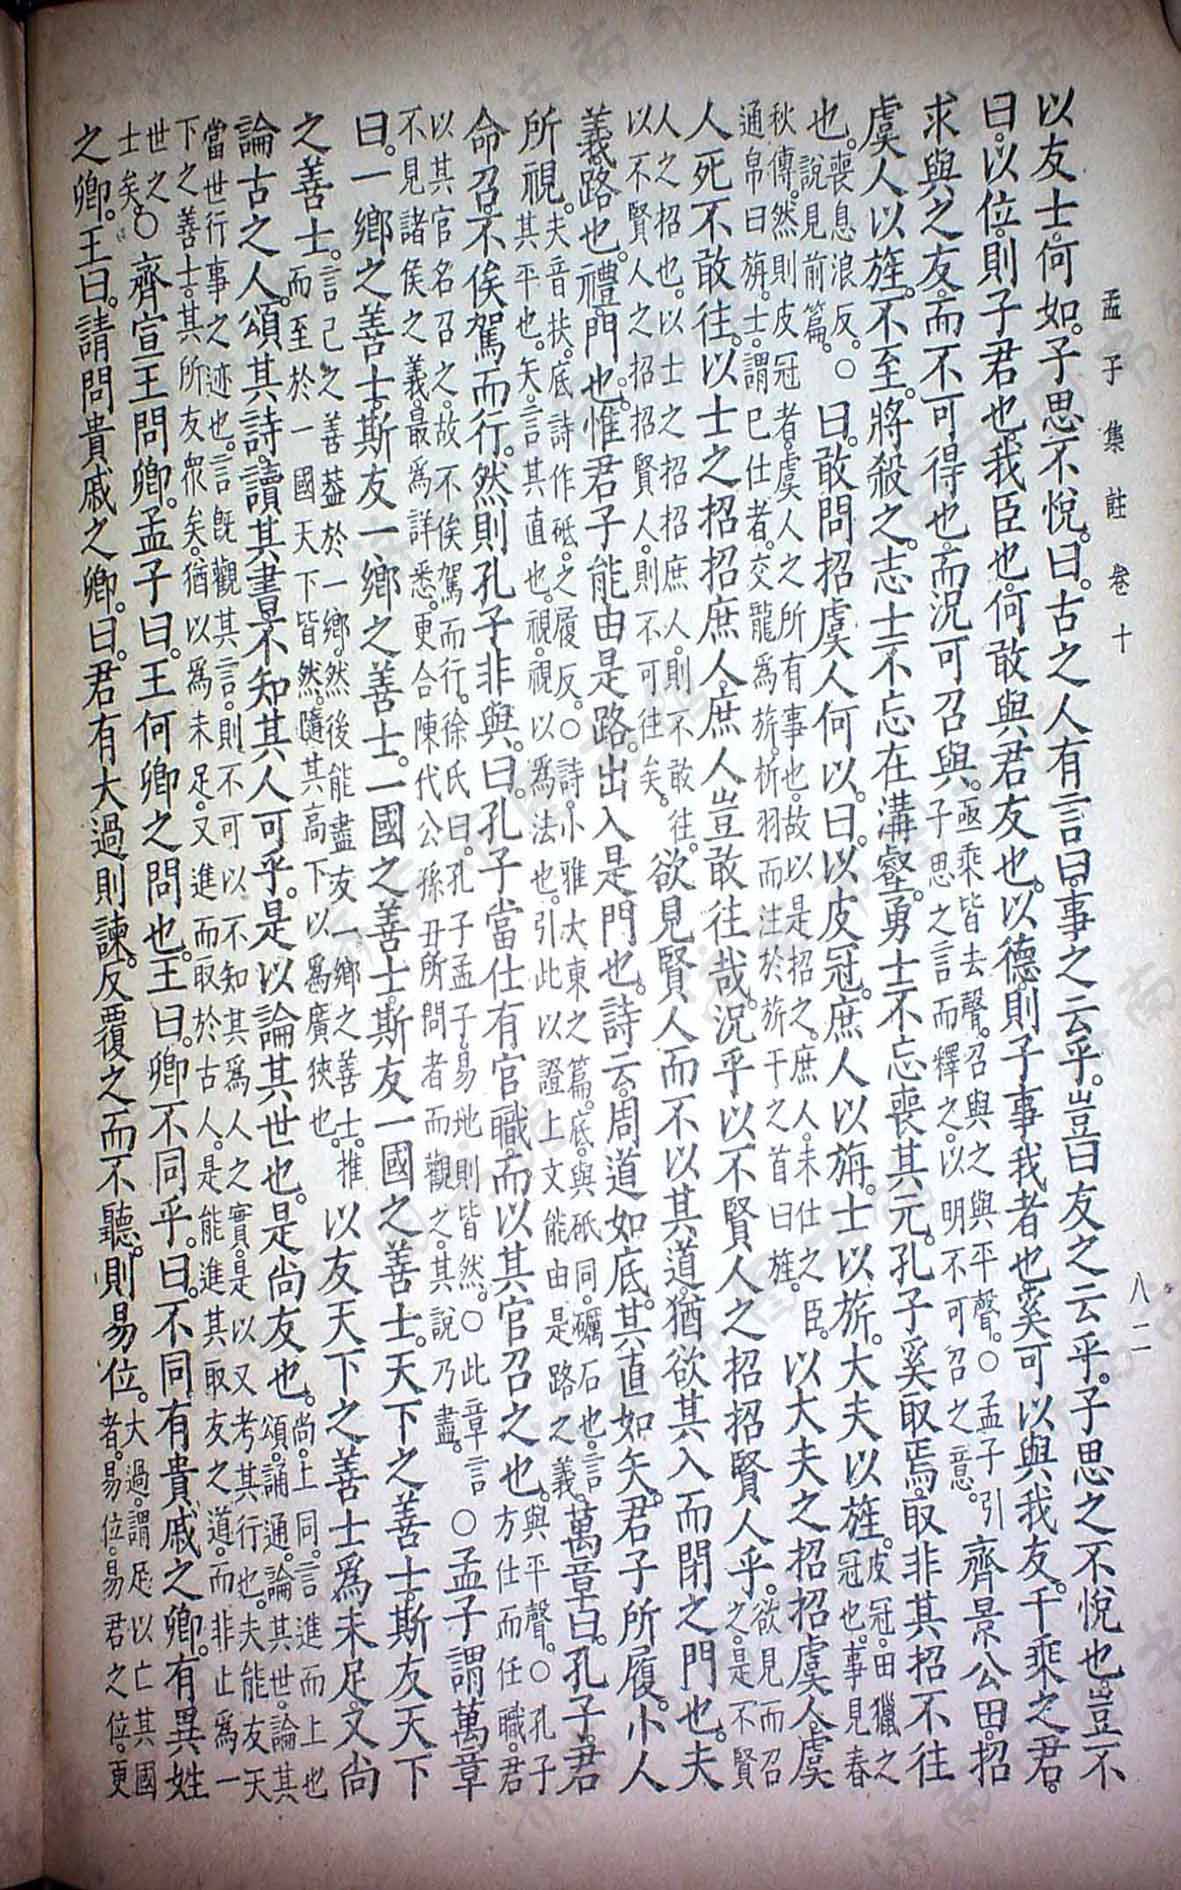 孟子集註 卷十 八二
以友士。何如。子思不悅。曰。古之人有言曰。事之云乎。豈曰友之云乎。子思之不悅也。豈不
曰。以位。則子君也。我臣也。何敢與君友也。以德。則子事我者也。奚可以與我友。千乘之君。
求與之友。而不可得也。而況可召與。亟乘皆去聲。召與之與平聲。○孟子引子思之言而釋之。以明不可召之意。齊景公田。招
虞人以旌。不至。將殺之。志士不忘在溝壑。勇士不忘喪其元。孔子奚取焉。取非其招不往
也。喪息浪反。說見前篇。○曰。敢問招虞人何以。曰。以皮冠。庶人以旃。士以旂。大夫以旌。皮冠。田獵之冠也。事見春
秋傳。然則皮冠者。虞人之所有事也。故以是招之。庶人。未仕之臣。通帛曰旃。士。謂已仕者。交龍爲旂。析羽而注於旂干之首曰旌。以大夫之招招虞人。虞
人死不敢往。以士之招招庶人。庶人豈敢往哉。況乎以不賢人之招招賢人乎。欲見而召之。是不賢
人之招也。以士之招招庶人。則不敢往。以不賢人之招招賢人。則不可往矣。欲見賢人而不以其道。猶欲其入而閉之門也。夫
義。路也。禮。門也。惟君子能由是路。出入是門也。詩云。周道如底。其直如矢。君子所履。小人
所視。夫音扶。底詩作砥。之履反。○詩小雅大東之篇。底。與砥同。礪石也。言其平也。矢。言其直也。視。視以爲法也。引此以證上文能由是路之義。萬章曰。孔子。君
命召。不俟駕而行。然則孔子非與。曰。孔子當仕有官職。而以其官召之也。與平聲。○孔子方仕而任職。君
以其官名召之。故不俟駕而行。徐氏曰。孔子孟子。易地則皆然。○此章言不見諸侯之義。最爲詳悉。更合陳代公孫丑所問者而觀之。其說乃盡。○孟子謂萬章
曰。一鄉之善士。斯友一鄉之善士。一國之善士。斯友一國之善士。天下之善士。斯友天下
之善士。言己之善蓋於一鄉。然後能盡友一鄉之善士。推而至於一國天下皆然。隨其高下以爲廣狹也。以友天下之善士爲未足。又尚
論古之人。頌其詩。讀其書。不知其人可乎。是以論其世也。是尚友也。尚。上同。言進而上也頌。誦通。論其世。論其
當世行事之迹也。言旣觀其言。則不可以不知其爲人之實。是以又考其行也。夫能友天下之善士。其所友衆矣。猶以爲未足。又進而取於古人。是能進其取友之道。而非止爲一
世之士矣。○齊宣王問卿。孟子曰。王何卿之問也。王曰。卿不同乎。曰。不同。有貴戚之卿。有異姓
之卿。王曰。請問貴戚之卿。曰。君有大過則諫。反覆之而不聽。則易位。大過。謂足以亡其國者。易位。易君之位。更